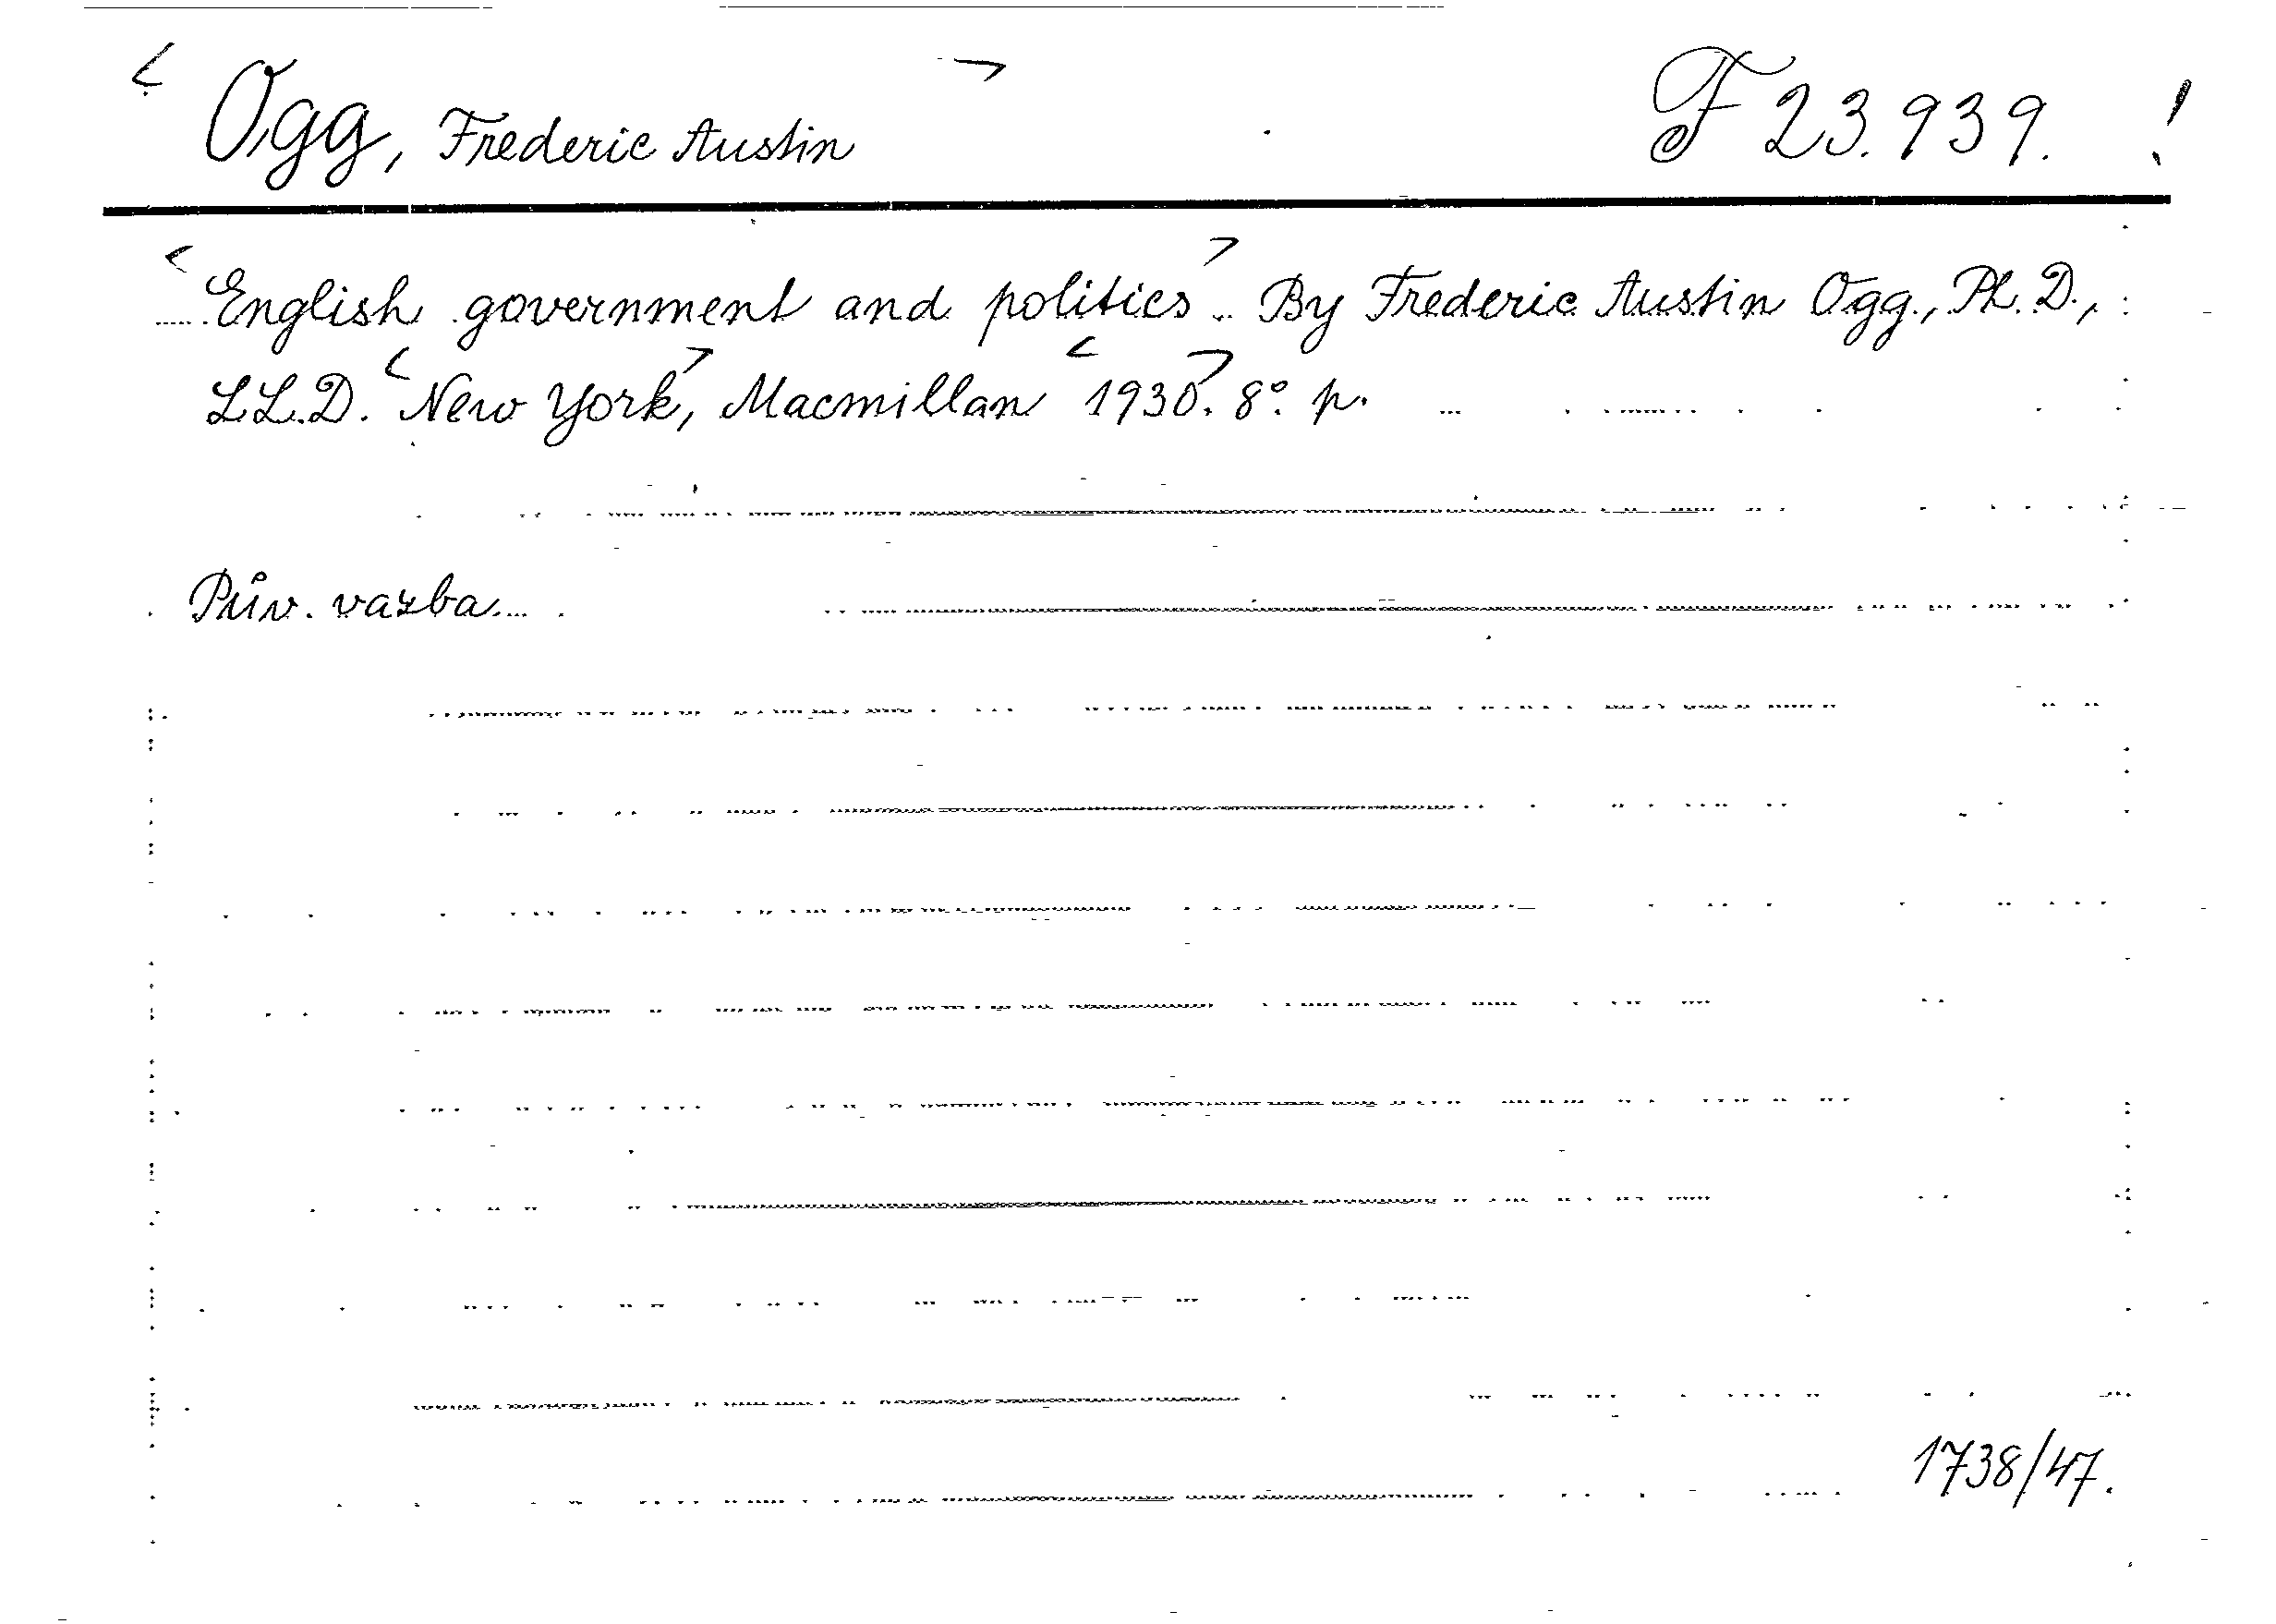 < Ogg, Frederic Austin > F 23.939. !
< English government and politics >. By Frederic Austin Ogg, Ph. D.,
LL.D. < New York >, Macmillan < 1930 >. 8°. p.
Pův. vazba.
1738/47.